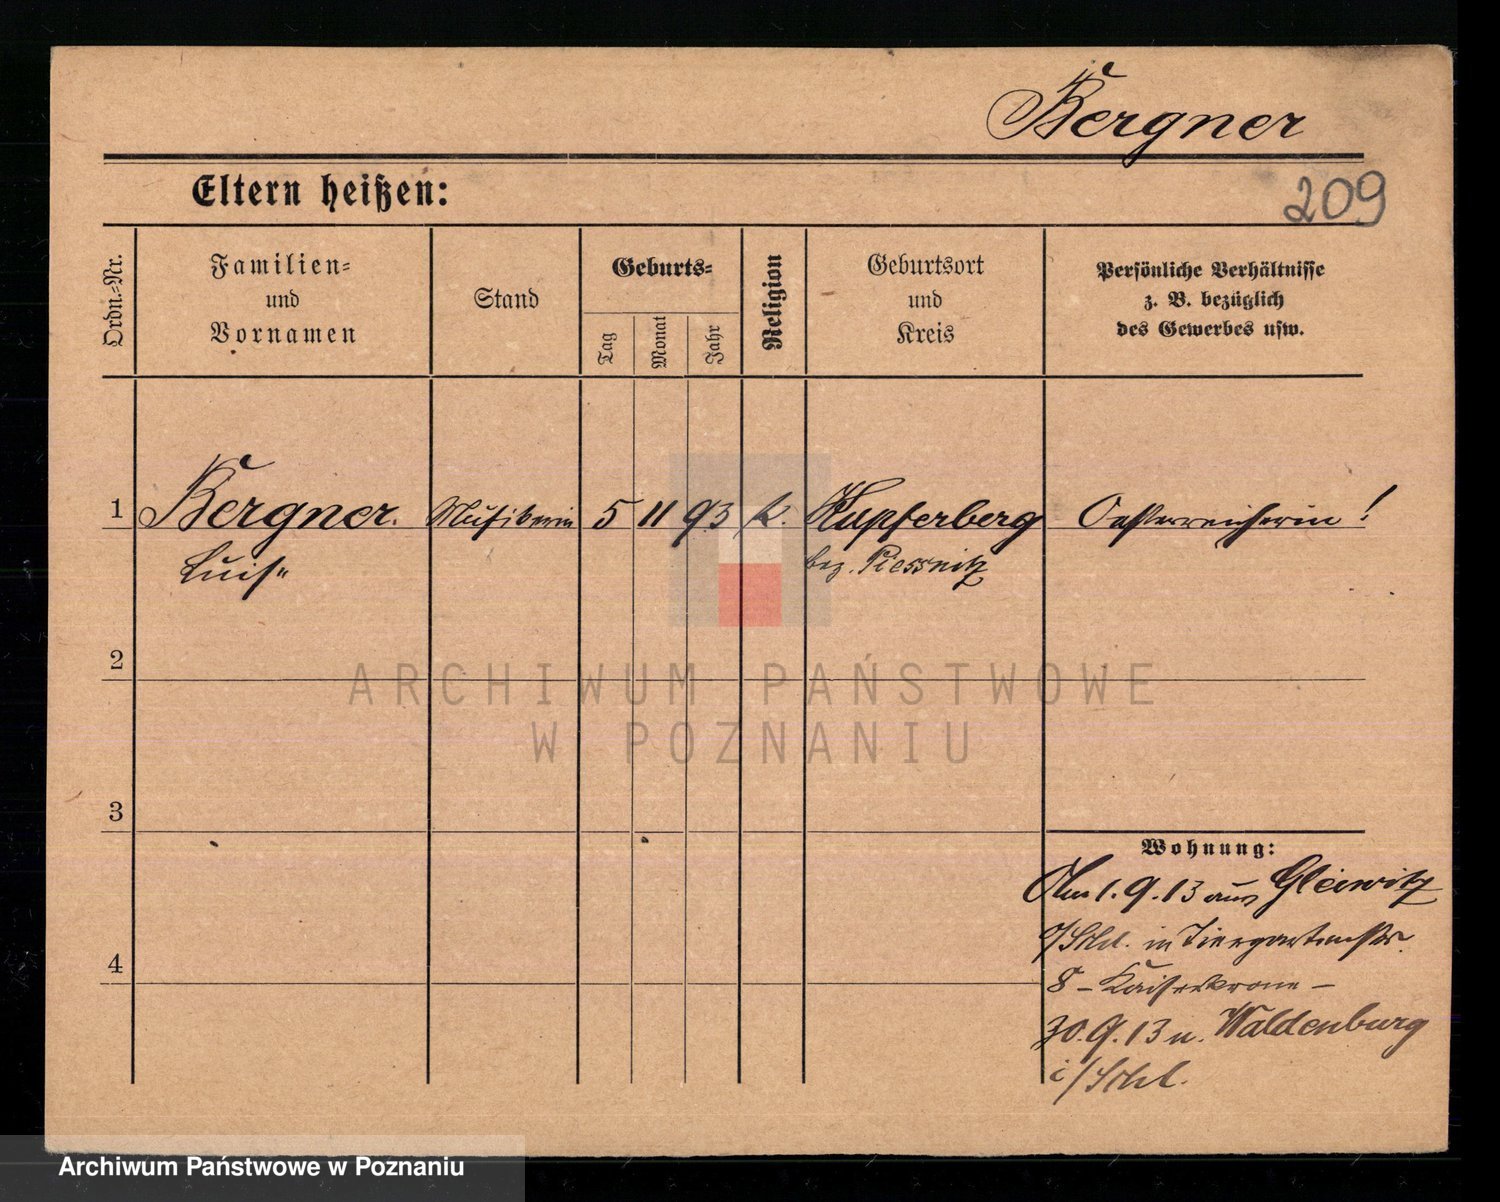 Bergner
Eltern heißen:
209
Ordn.-Nr.
Familien-
und
Vornamen
Stand
Geburts-
Tag
Monat
Jahr
Religion
Geburtsort
und
Kreis
Persönliche Verhältnisse
z. B. bezüglich
des Gewerbes usw.
1 Bergner. Musikerin 5 11 93 k. Kupferberg Oesterreicherin!
Luise
bez. Pressnitz
2
3
4
Wohnung:
Am 1.9.13 aus Gleiwitz
/Schl. in Tiergartenstr.
8 - Kaiserkrone -
30.9.13 n. Waldenburg
i/Schl.
ARCHIWUM PAŃSTWOWE
W POZNANIU
Archiwum Państwowe w Poznaniu